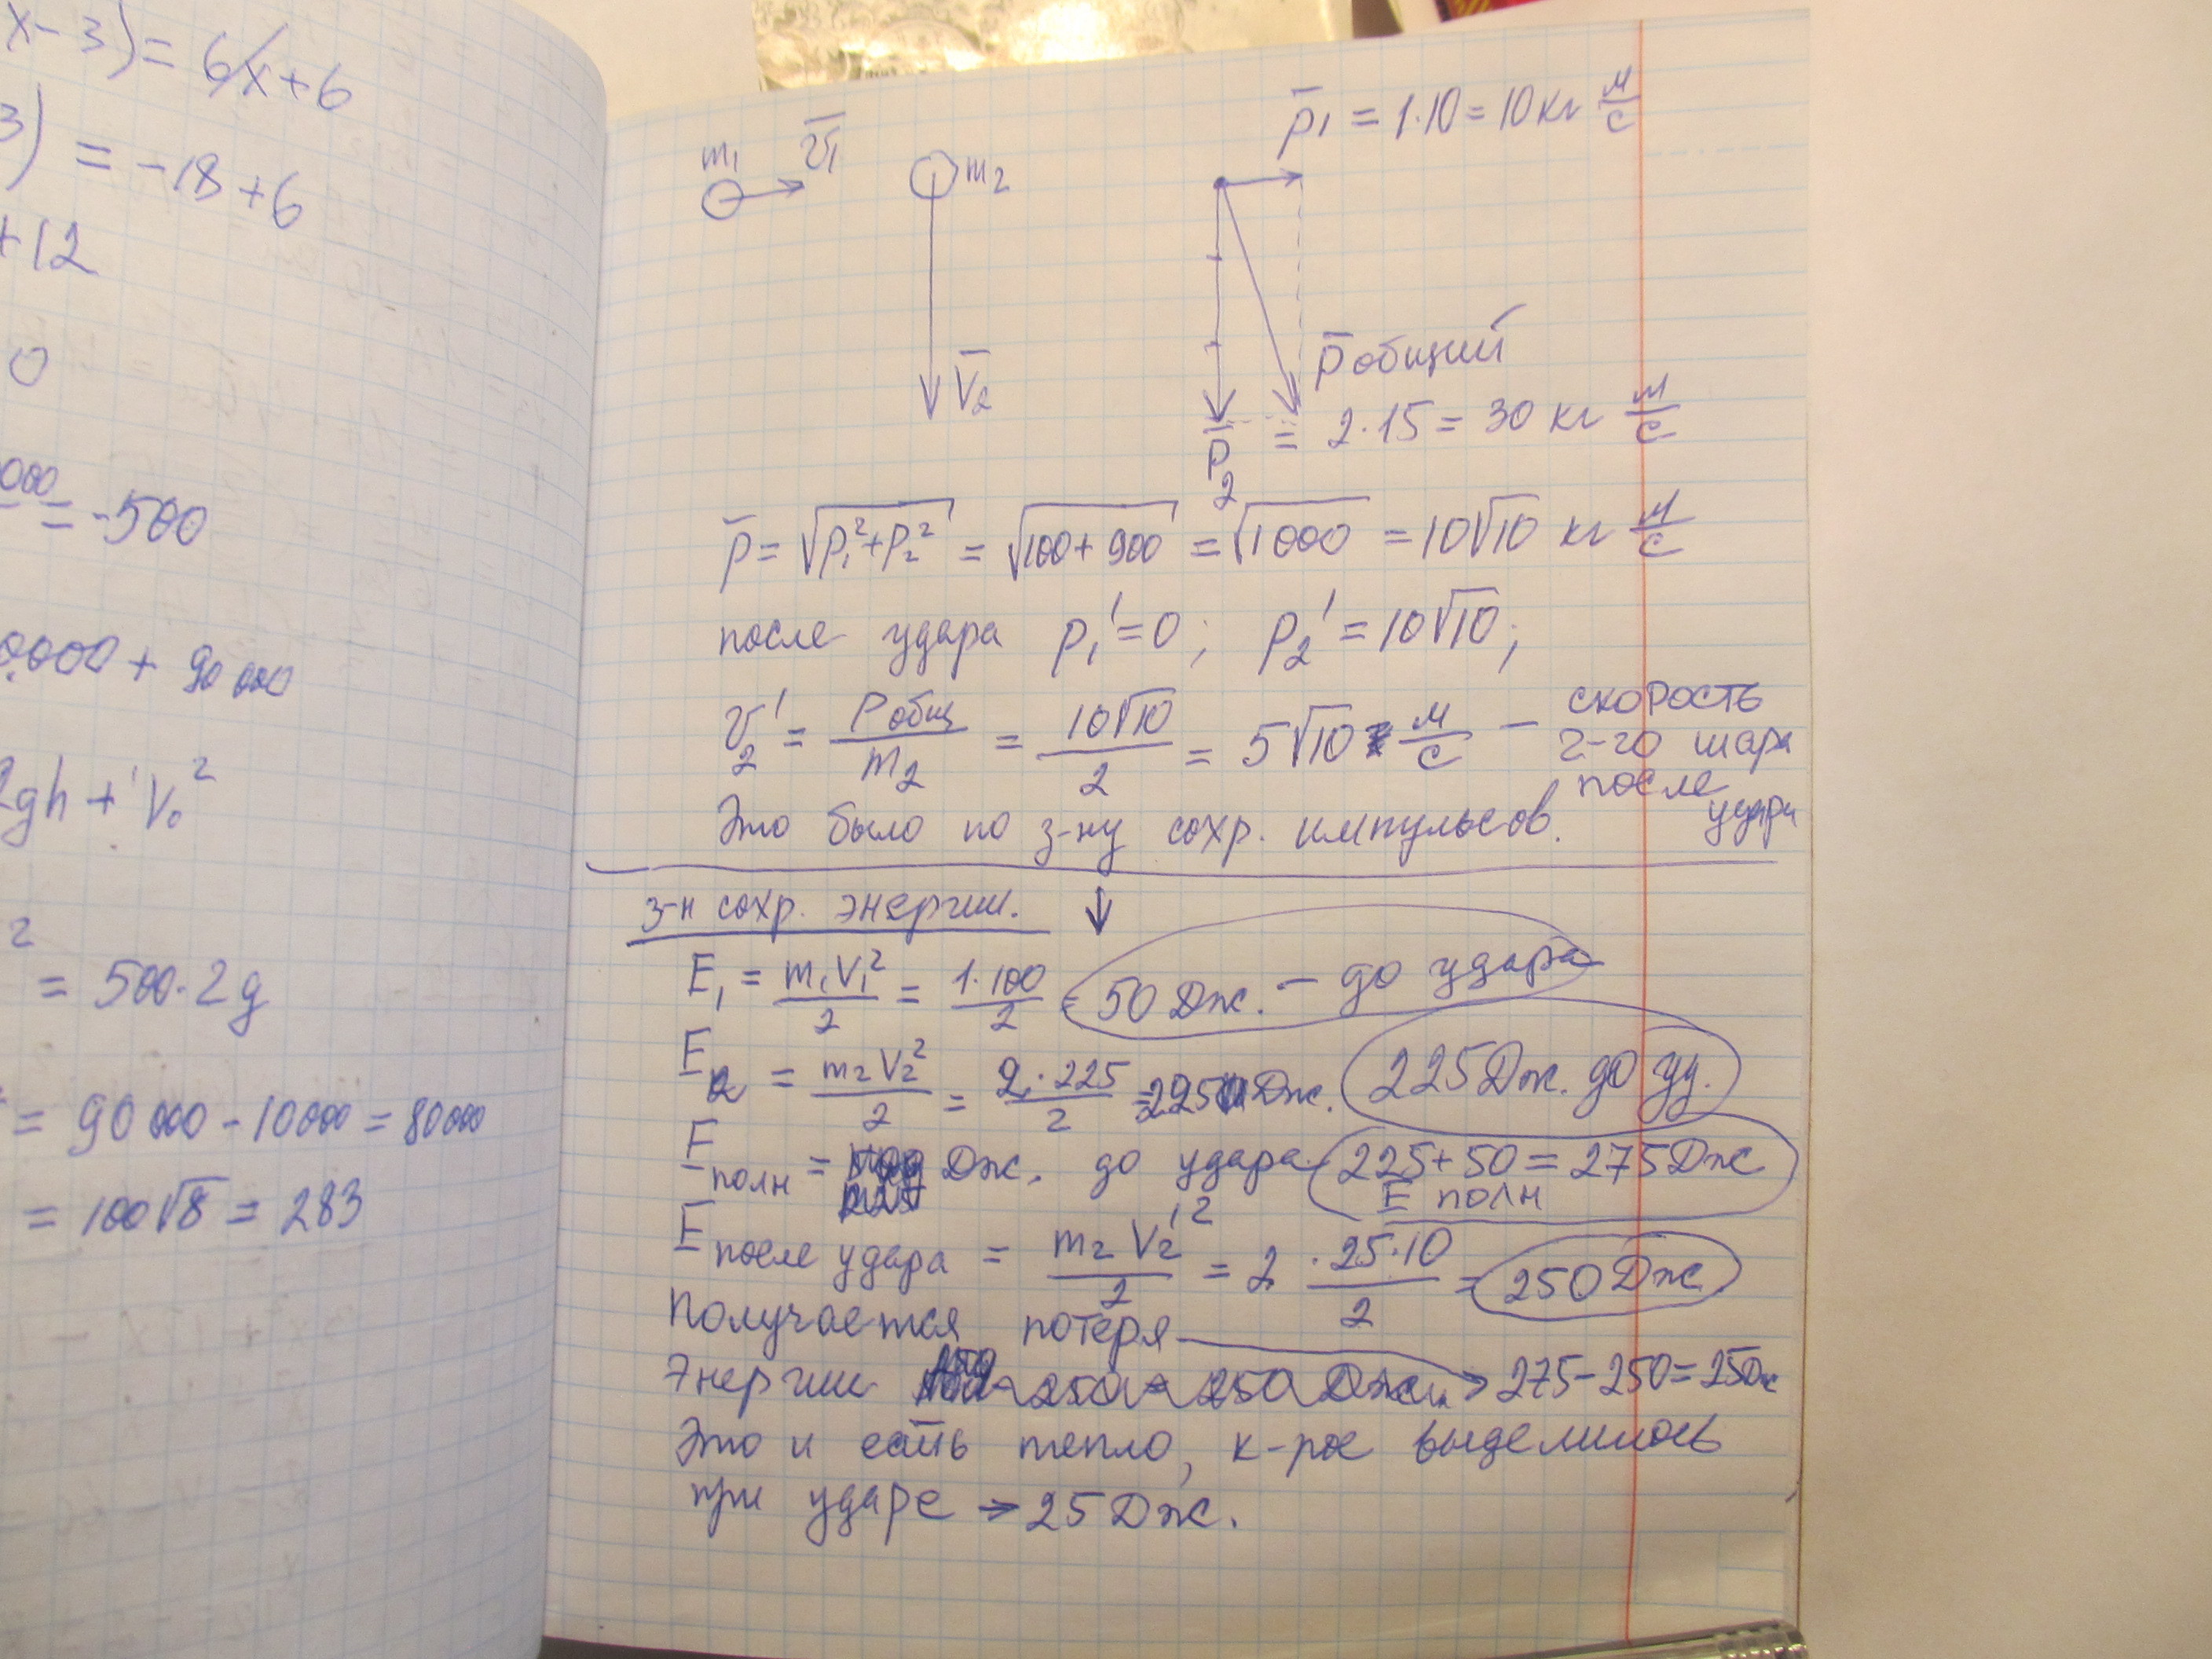 x - 3) = 6/x + 6
3) = -18 + 6
+12
0
000 = -500
0.000 + 90 000
2gh + V₀²
2
= 500·2g
= 90 000 - 10 000 = 80 000
= 100√8 = 283
m₁ v̅₁ m₂
p̅₁ = 1·10 = 10 кг м/с
V̅₂
p̅ общий
p̅₂ = 2·15 = 30 кг м/с
p̅ = √(p₁² + p₂²) = √(100 + 900) = √1000 = 10√10 кг м/с
после удара p₁' = 0; p₂' = 10√10;
v₂' = P общ / m₂ = 10√10 / 2 = 5√10 м/с — скорость 2-го шара после удара
Это было по з-ну сохр. импульсов.
з-н сохр. энергии. ↓
E₁ = m₁V₁²/2 = 1·100/2 = 50 Дж. — до удара
E₂ = m₂V₂²/2 = 2·225/2 = 225 Дж. 225 Дж. до уд.
E полн = Дж. до удара 225 + 50 = 275 Дж
E полн
E после удара = m₂V₂'²/2 = 2·25·10/2 = 250 Дж
Получается потеря
Энергии - 250 = 250 Дж. → 275 - 250 = 25 Дж
Это и есть тепло, к-рое выделилось
при ударе → 25 Дж.